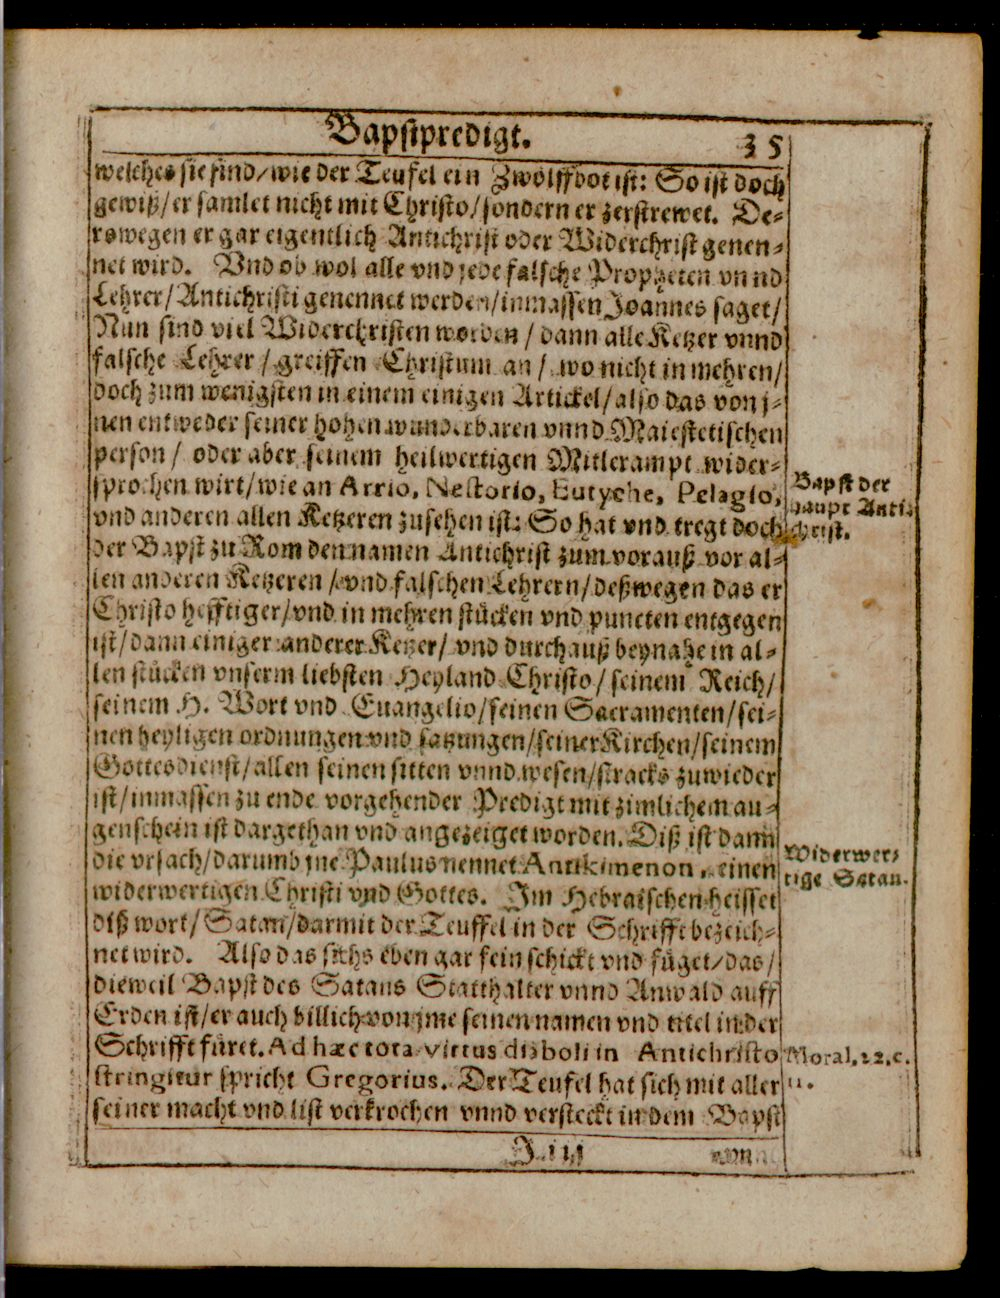 Bapstpredigt. 35
welches sie sind/wie der Teufel ein Zwölffbot ist: So ist doch
gewiß/er samlet nicht mit Christo/sondern er zerstrewet. De-
rowegen er gar eigentlich Antichrist oder Widerchrist genen-
net wird. Vnd ob wol alle vnd jede falsche Propheten vnnd
Lehrer/Antichristi genennet werden/inmassen Joannes saget/
Nun sind viel Widerchristen worden / dann alle Ketzer vnnd
falsche Lehrer / greiffen Christum an / wo nicht in mehren/
doch zum wenigsten in einem einigen Artickel/also das von j-
nen entweder seiner hohen wunderbaren vnnd Maiestetischen
person / oder aber seinem heilwertigen Mitlerampt wider-
sprochen wirt/wie an Arrio, Nestorio, Eutyche, Pelagio,
vnd anderen allen Ketzeren zusehen ist: So hat vnd tregt doch
der Bapst zu Rom den namen Antichrist zum vorauß vor al-
len anderen Ketzeren / vnd falschen Lehrern/deßwegen das er
Christo hefftiger/vnd in mehren stücken vnd puncten entgegen
ist/dann einiger anderer Ketzer/ vnd durchauß beynahe in al-
len stücken vnserm liebsten Heyland Christo/ seinem Reich/
seinem H. Wort vnd Euangelio/seinen Sacramenten/sei-
nen heyligen ordnungen vnd satzungen/seiner Kirchen/seinem
Gottesdienst/allen seinen sitten vnnd wesen/stracks zuwieder
ist/inmassen zu ende vorgehender Predigt mit zimlichem au-
genschein ist dargethan vnd angezeiget worden. Diß ist dann
die vrsach/darumb jne Paulus nennet Antikimenon, einen
widerwertigen Christi vnd Gottes. Im Hebraischen heisset
diß wort/ Satan/darmit der Teuffel in der Schrifft bezeich-
net wird. Also das sichs eben gar fein schickt vnd füget/das/
dieweil Bapst des Satans Statthalter vnnd Anwald auff
Erden ist/er auch billich von jme seinen namen vnd titel in der
Schrifft füret. Ad hæc tota virtus diaboli in Antichristo
stringitur spricht Gregorius. Der Teufel hat sich mit aller
seiner macht vnd list verkrochen vnnd versteckt in dem Bapst
Bapst der
haupt Anti-
christ.
Widerwer-
tige Satan.
Moral. 22. c.
11.
J iij